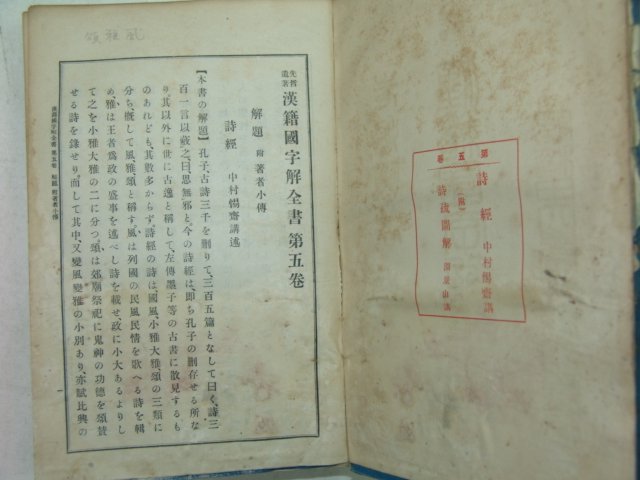 第五卷
詩經 中村惕齋講
(附)
詩疏圖解 淵景山講
風雅頌
先哲遺著 漢籍國字解全書第五卷
解題 附著者小傳
詩經 中村惕齋講述
【本書の解題】孔子、古詩三千を刪りて、三百五篇となして曰く、詩三
百一言以蔽之、曰、思無邪と、今の詩經は、卽ち孔子の刪存せる所な
り。其以外に世に古逸と稱して、左傳墨子等の古書に散見するも
のあれども、其數多からず。詩經の詩は、國風、小雅大雅頌の三類に
分ち、概して風雅頌と稱す。風は列國の民風民情を歌へる詩を輯
め、雅は王者爲政の盛事を述べし詩を載せ、政に小大あるよりし
て之を小雅大雅の二に分つ。頌は郊廟祭祀に鬼神の功德を頌賛
せる詩を錄せり。而して其中、又變風變雅の小別あり、亦賦比興の
漢籍國字解全書 第五卷 解題 附著者小傳